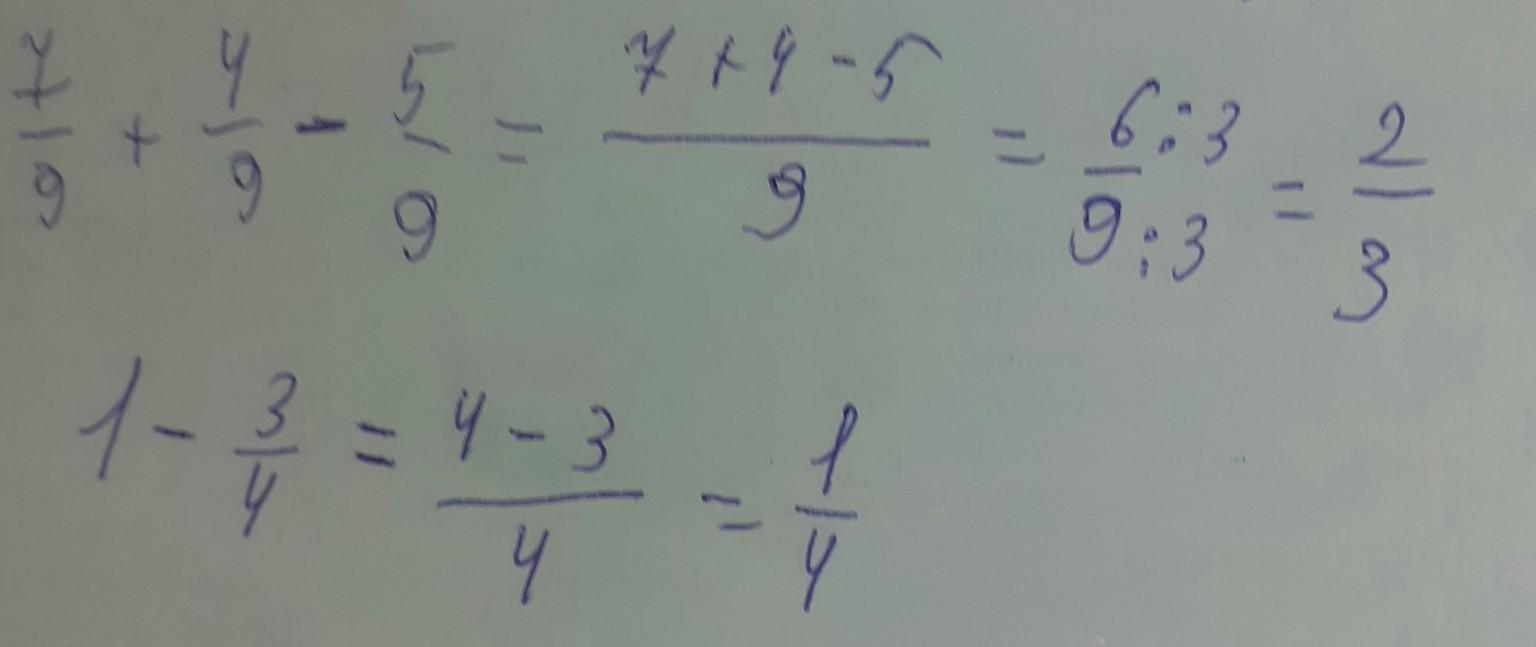 7/9 + 4/9 - 5/9 = (7 + 4 - 5)/9 = (6:3)/(9:3) = 2/3
1 - 3/4 = (4 - 3)/4 = 1/4